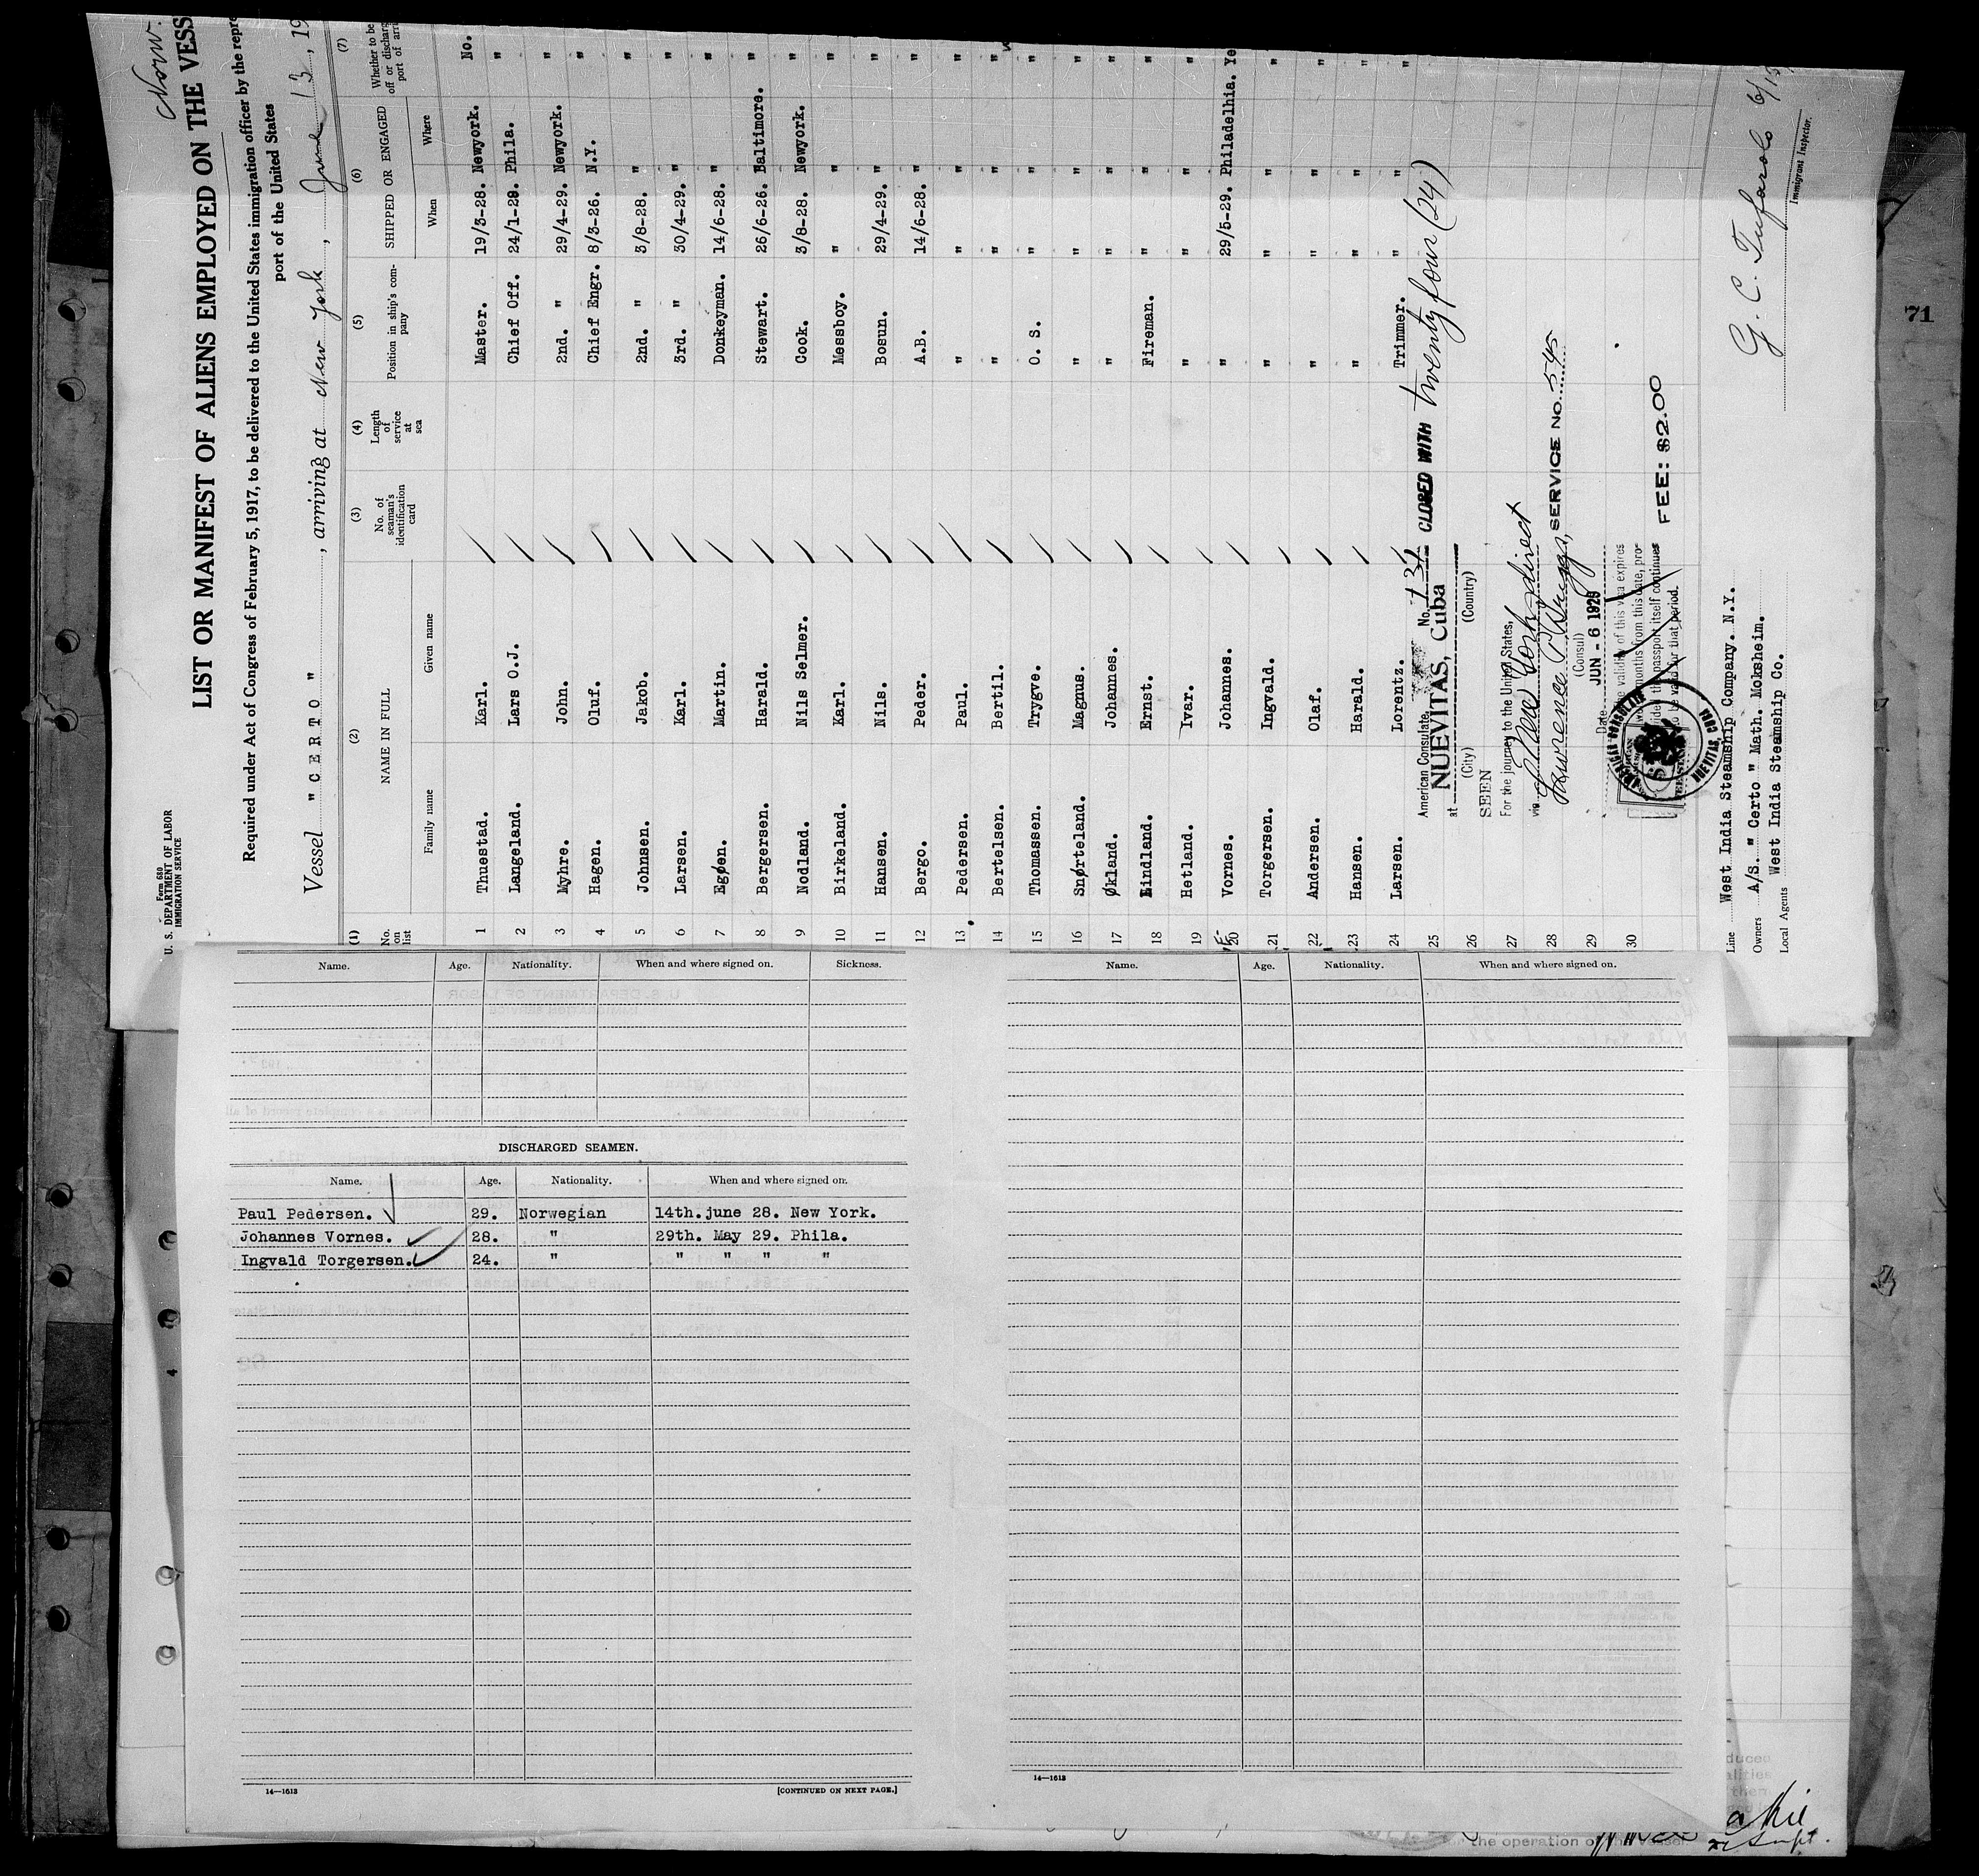 Form 680
U. S. DEPARTMENT OF LABOR
IMMIGRATION SERVICE
Norw.
LIST OR MANIFEST OF ALIENS EMPLOYED ON THE VESS
Required under Act of Congress of February 5, 1917, to be delivered to the United States immigration officer by the repre
port of the United States
Vessel " C E R T O " , arriving at New York , June 13 , 19
(1) (2) (3) (4) (5) (6) (7)
No. on list NAME IN FULL No. of seaman's identification card Length of service at sea Position in ship's company SHIPPED OR ENGAGED Whether to be off or discharg port of arri
Family name Given name When Where
1 Thuestad. Karl. Master. 19/3-28. Newyork. No.
2 Langeland. Lars O.J. Chief Off. 24/1-28. Phila. "
3 Myhre. John. 2nd. " 29/4-29. Newyork. "
4 Hagen. Oluf. Chief Engr. 8/3-26. N.Y. "
5 Johnsen. Jakob. 2nd. " 3/8-28. " "
6 Larsen. Karl. 3rd. " 30/4-29. " "
7 Egøen. Martin. Donkeyman. 14/6-28. " "
8 Bergersen. Harald. Stewart. 26/6-26. Baltimore. "
9 Nodland. Nils Selmer. Cook. 3/8-28. Newyork. "
10 Birkeland. Karl. Messboy. " " "
11 Hansen. Nils. Bosun. 29/4-29. " "
12 Bergo. Peder. A.B. 14/6-28. " "
13 Pedersen. Paul. " " " "
14 Bertelsen. Bertil. " " " "
15 Thomassen. Trygve. O. S. " " "
16 Snørteland. Magnus. " " " "
17 Økland. Johannes. " " " "
18 Lindland. Ernst. Fireman. " " "
19 Hetland. Ivar. " " " "
20 Vornes. Johannes. " 29/5-29. Philadelhia. Ye
21 Torgersen. Ingvald. " " " "
22 Andersen. Olaf. " " " "
23 Hansen. Harald. " " " "
24 Larsen. Lorentz. Trimmer. " " "
25 American Consulate, No. 131 CLOSED WITH twenty four (24)
at NUEVITAS, Cuba
26 (City) (Country)
SEEN
27 For the journey to the United States,
via New York direct
28 SERVICE NO. 545
(Consul)
29 Date JUN - 6 1929
The validity of this visa expires
months from this date, pro-
30 vided the passport itself continues
to be valid for that period.
FEE: $2.00
AMERICAN CONSULATE
NUEVITAS, CUBA
Line West India Steamship Company. N.Y.
Owners A/S. " Certo " Math. Moksheim.
Local Agents West India Steamship Co.
G. C. Tufarolo 6/13
Immigrant Inspector.
71
Name. Age. Nationality. When and where signed on. Sickness.
DISCHARGED SEAMEN.
Name. Age. Nationality. When and where signed on.
Paul Pedersen. 29. Norwegian 14th. june 28. New York.
Johannes Vornes. 28. " 29th. May 29. Phila.
Ingvald Torgersen. 24. " " " " "
14—1613
[CONTINUED ON NEXT PAGE.]
Name. Age. Nationality. When and where signed on.
14—1613
4
duced
alities
them
the operation of